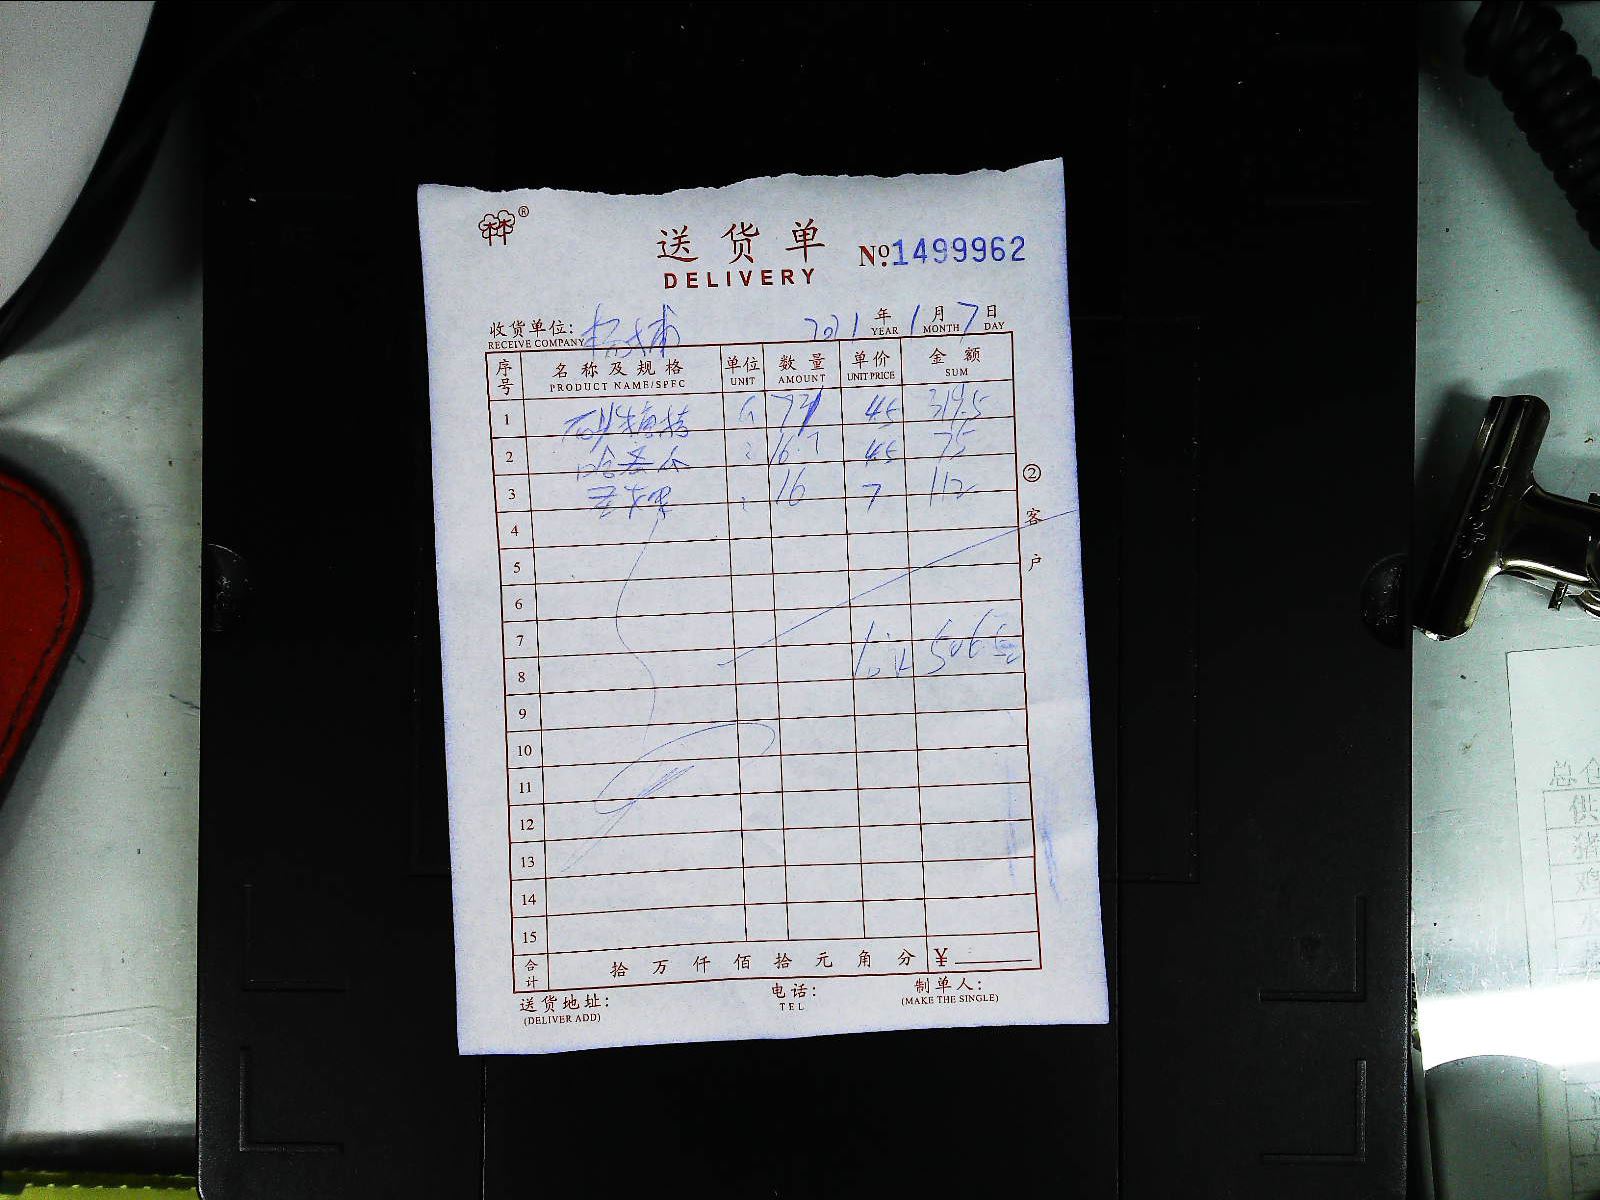 林®
送货单
DELIVERY
№:1499962
收货单位: 2021年1月7日
RECEIVE COMPANY YEAR MONTH DAY
序号 名称及规格 单位 数量 单价 金额
PRODUCT NAME/SPEC UNIT AMOUNT UNIT PRICE SUM
1 45 319.5
2 哈密瓜 16.7 45 75
3 16 7 112
4
5
6
7
8 合计 506.5元
9
10
11
12
13
14
15
合计 拾万仟佰拾元角分 ¥
②客户
送货地址: 电话: 制单人:
(DELIVER ADD) TEL (MAKE THE SINGLE)
总仓
供
猪
鸡